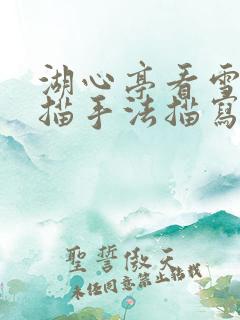 湖心亭看雪
描手法描寫
聖誓傲天
未经同意禁止转载